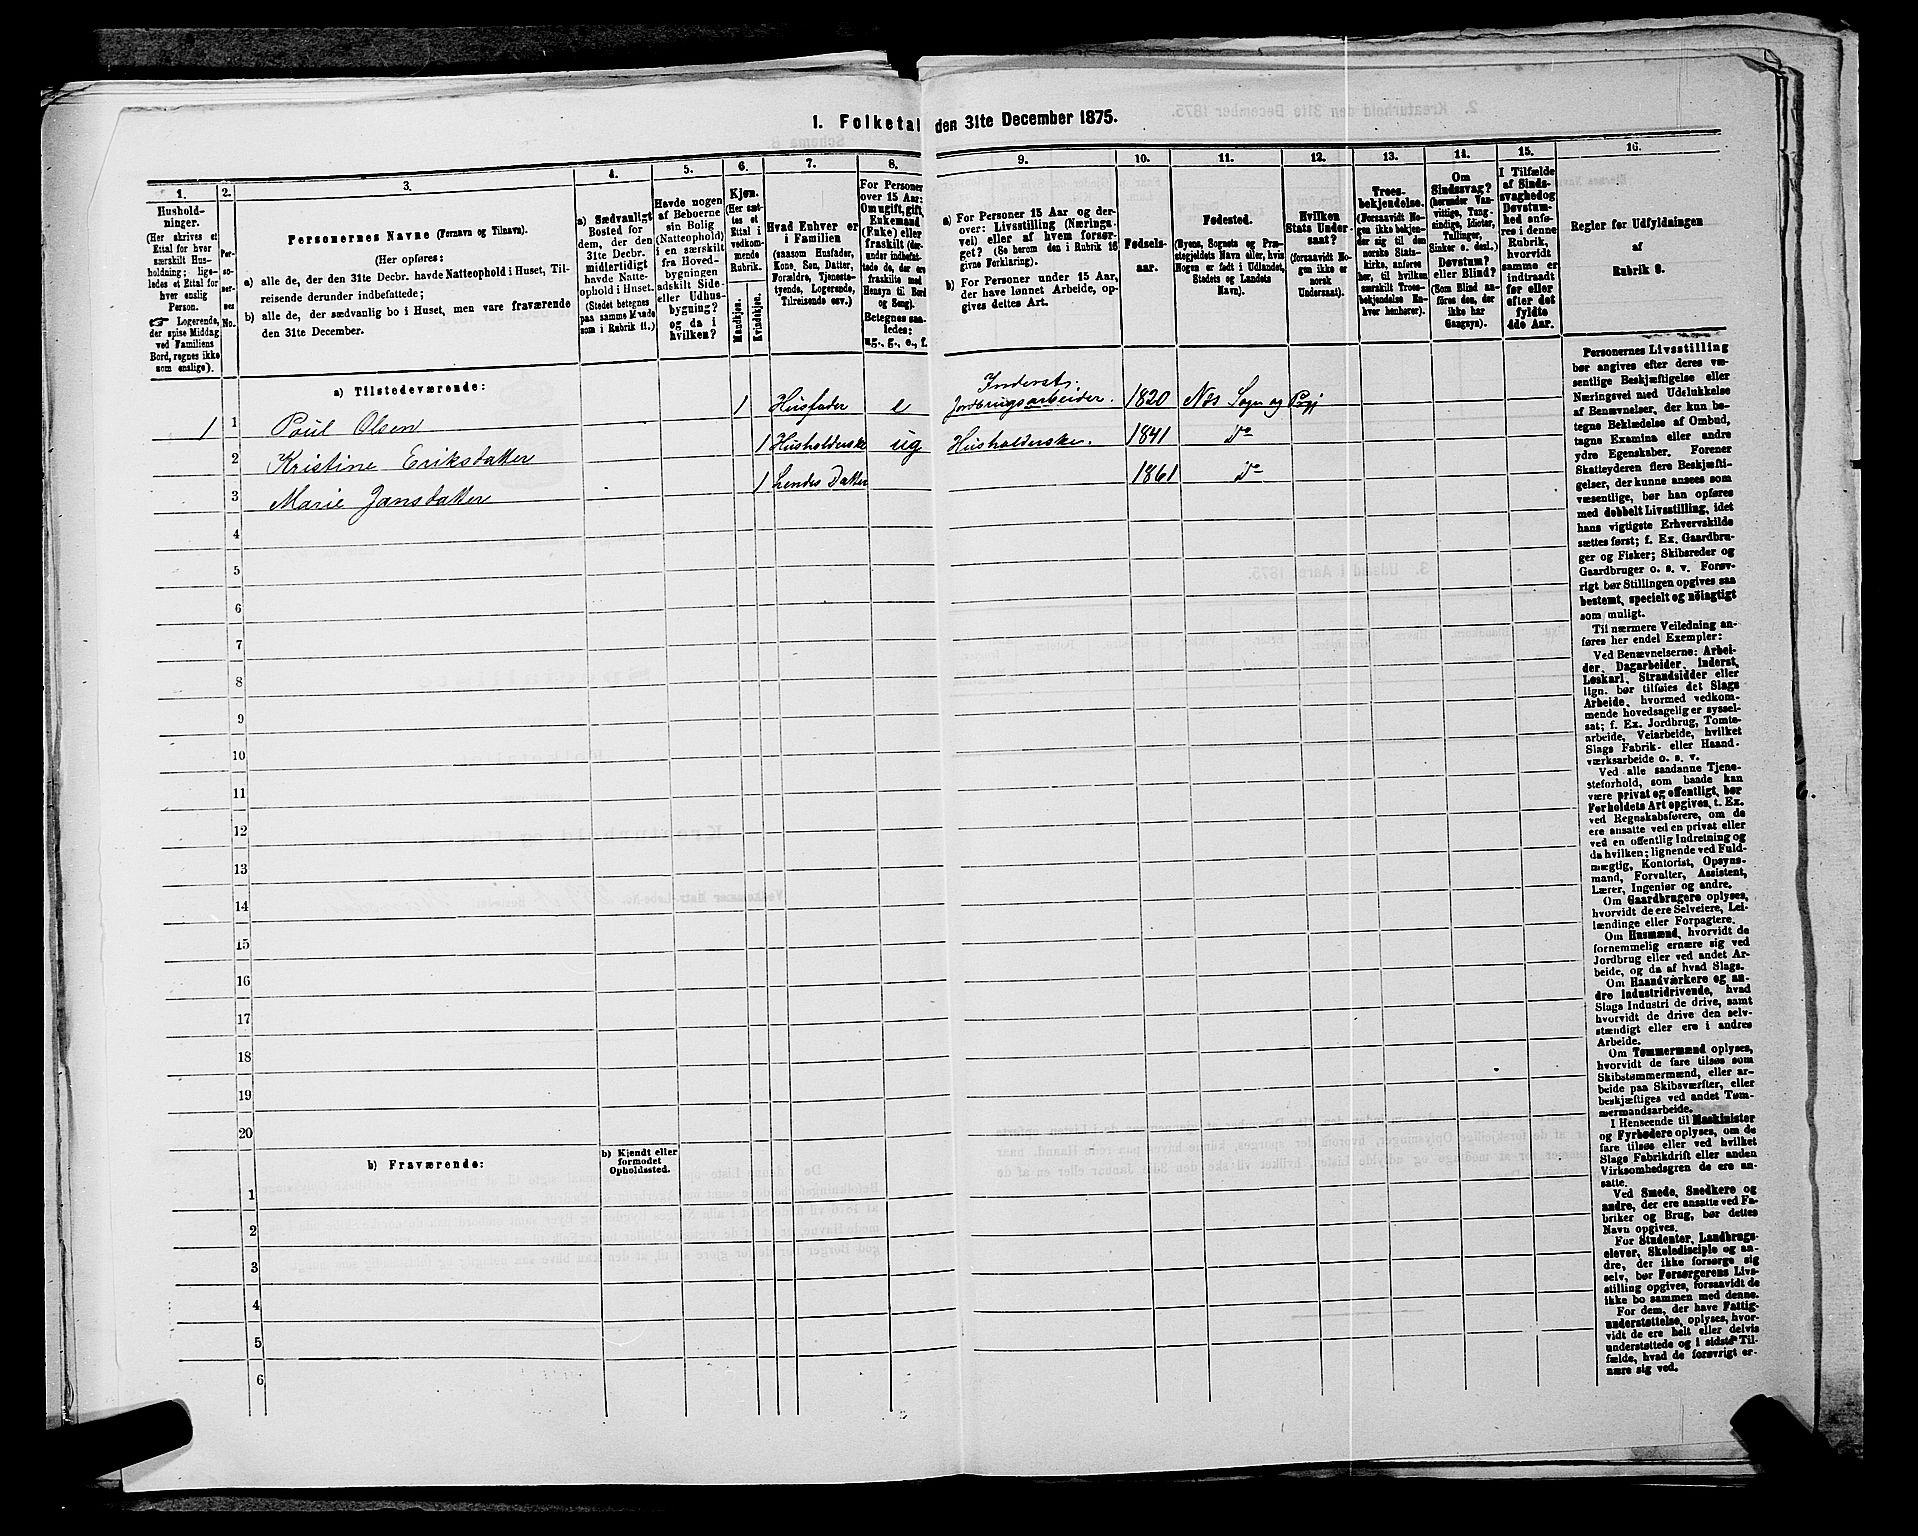 1. Folketal den 31te December 1875.
1. 2. 3. 4. 5. 6. 7. 8. 9. 10. 11. 12. 13. 14. 15. 16.
Hushold-
ninger.
(Her skrives et
Ettal for hver
særskilt Hus-
holdning; lige-
ledes et Ettal for
hver enslig
Person.
☞ Logerende,
der spise Middag
ved Familiens
Bord, regnes ikke
som enslige).
Per-
so-
ner-
nes
No.
Personernes Navne (Fornavn og Tilnavn).
(Her opføres:
a) alle de, der den 31te Decbr. havde Natteophold i Huset, Til-
reisende derunder indbefattede;
b) alle de, der sædvanlig bo i Huset, men vare fraværende
den 31te December.
a) Sædvanligt
Bosted for
dem, der den
31te Decbr.
midlertidigt
havde Natte-
ophold i Huset.
(Stedet betegnes
paa samme Maade
som i Rubrik 11.)
Havde nogen
af Beboerne
sin Bolig
(Natteophold)
i en særskilt
fra Hoved-
bygningen
adskilt Side-
eller Udhus-
bygning?
og da i
hvilken?
Kjøn.
(Her sæt-
tes et
Ettal i
vedkom-
mende
Rubrik.
Mandkjøn.
Kvindekjøn.
Hvad Enhver er
i Familien
(saasom Husfader,
Kone, Søn, Datter,
Forældre, Tjeneste-
tyende, Logerende,
Tilreisende osv.)
For Personer
over 15 Aar:
Om ugift, gift,
Enkemand
(Enke) eller
fraskilt (der-
under indbefat-
tede de, der ere
fraskilte med
Hensyn til Bord
og Seng).
Betegnes saa-
ledes:
ug., g., e., f.
a) For Personer 15 Aar og der-
over: Livsstilling (Nærings-
vei) eller af hvem forsør-
get? (Se herom den i Rubrik 16
givne Forklaring).
b) For Personer under 15 Aar,
der have lønnet Arbeide, op-
gives dettes Art.
Fødsels-
aar.
Fødested.
(Byens, Sognets og Præ-
stegjeldets Navn eller, hvis
Nogen er født i Udlandet,
Stedets og Landets
Navn).
Hvilken
Stats Under-
saat?
(forsaavidt No-
gen ikke er
norsk
Undersaat).
Troes-
bekjendelse.
(Forsaavidt No-
gen ikke bekjen-
der sig til den
norske Stats-
kirke, anføres
her, til hvilken
særskilt Troes-
bekjendelse En-
hver henhører).
Om
Sindssvag?
(herunder Van-
vittige, Tung-
sindige, Idioter,
Tullinger,
Sinker o. desl.)
Døvstum?
eller Blind?
(Som Blind an-
føres den, der
ikke har
Gangsyn).
I Tilfælde
af Sinds-
svaghed og
Døvstum-
hed anfø-
res i denne
Rubrik,
hvorvidt
samme er
indtraadt
før eller
efter det
fyldte
4de Aar.
Regler for Udfyldningen
af
Rubrik 9.
a) Tilstedeværende:
1 1 Poul Olsen 1 Husfader e Inderst. Jordbrugsarbeider. 1820 Næs Sogn og Pgj
2 Kristine Eriksdatter 1 Husholderske ug Husholderske. 1841 Do
3 Marie Jansdatter 1 Datter 1861 Do
4
5
6
7
8
9
10
11
12
13
14
15
16
17
18
19
20
b) Fraværende:
b) Kjendt eller
formodet
Opholdssted.
1
2
3
4
5
6
Personernes Livsstilling
bør angives efter deres væ-
sentlige Beskjæftigelse eller
Næringsvei med Udelukkelse
af Benævnelser, der kun be-
tegne Beklædelse af Ombud,
tagne Examina eller andre
ydre Egenskaber. Forener
Skatteyderen flere Beskjæfti-
gelser, der kunne ansees som
væsentlige, bør han opføres
med dobbelt Livsstilling, idet
hans vigtigste Erhvervskilde
sættes først; f. Ex. Gaardbru-
ger og Fisker; Skibsreder og
Gaardbruger o. s. v. Forøv-
rigt bør Stillingen opgives saa
bestemt, specielt og nöiagtigt
som muligt.
Til nærmere Veiledning an-
føres her endel Exempler:
Ved Benævnelserne: Arbei-
der, Dagarbeider, Inderst,
Løskarl, Strandsidder eller
lign. bør tilføies det Slags
Arbeide, hvormed vedkom-
mende hovedsagelig er syssel-
sat; f. Ex. Jordbrug, Tomte-
arbeide, Veiarbeide, hvilket
Slags Fabrik- eller Haand-
værksarbeide o. s. v.
Ved alle saadanne Tjene-
steforhold, som baade kan
være privat og offentligt, bør
Forholdets Art opgives, t. Ex.
ved Regnskabsførere, om de
ere ansatte ved en privat eller
ved en offentlig Indretning og
da hvilken; lignende ved Fuld-
mægtig, Kontorist, Opsyns-
mand, Forvalter, Assistent,
Lærer, Ingeniør og andre.
Om Gaardbrugere oplyses,
hvorvidt de ere Selveiere, Lei-
lændinge eller Forpagtere.
Om Husmænd, hvorvidt de
fornemmelig ernære sig ved
Jordbrug eller ved andet Ar-
beide, og da af hvad Slags.
Om Haandværkere og an-
dre Industridrivende, hvad
Slags Industri de drive, samt
hvorvidt de drive den selv-
stændigt eller ere i andres
Arbeide.
Om Tømmermænd oplyses,
hvorvidt de fare tilsøs som
Skibstømmermænd, eller ar-
beide paa Skibsværfter, eller
beskjæftiges ved andet Tøm-
mermandsarbeide.
I Henseende til Maskinister
og Fyrbødere oplyses, om de
fare tilsøs eller ved hvilket
Slags Fabrikdrift eller anden
Virksomhedsgren de ere an-
satte.
Ved Smede, Snedkere og
andre, der ere ansatte ved Fa-
briker og Brug, bør dettes
Navn opgives.
For Studenter, Landbrugs-
elever, Skoledisciple og an-
dre, der ikke forsørge sig
selv, bør Forsørgerens Livs-
stilling opgives, forsaavidt de
ikke bo sammen med denne.
For dem, der have Fattig-
understøttelse, oplyses, hvor-
vidt de ere helt eller delvis
understøttede og i sidste Til-
fælde, hvad de forøvrigt er-
nære sig ved.